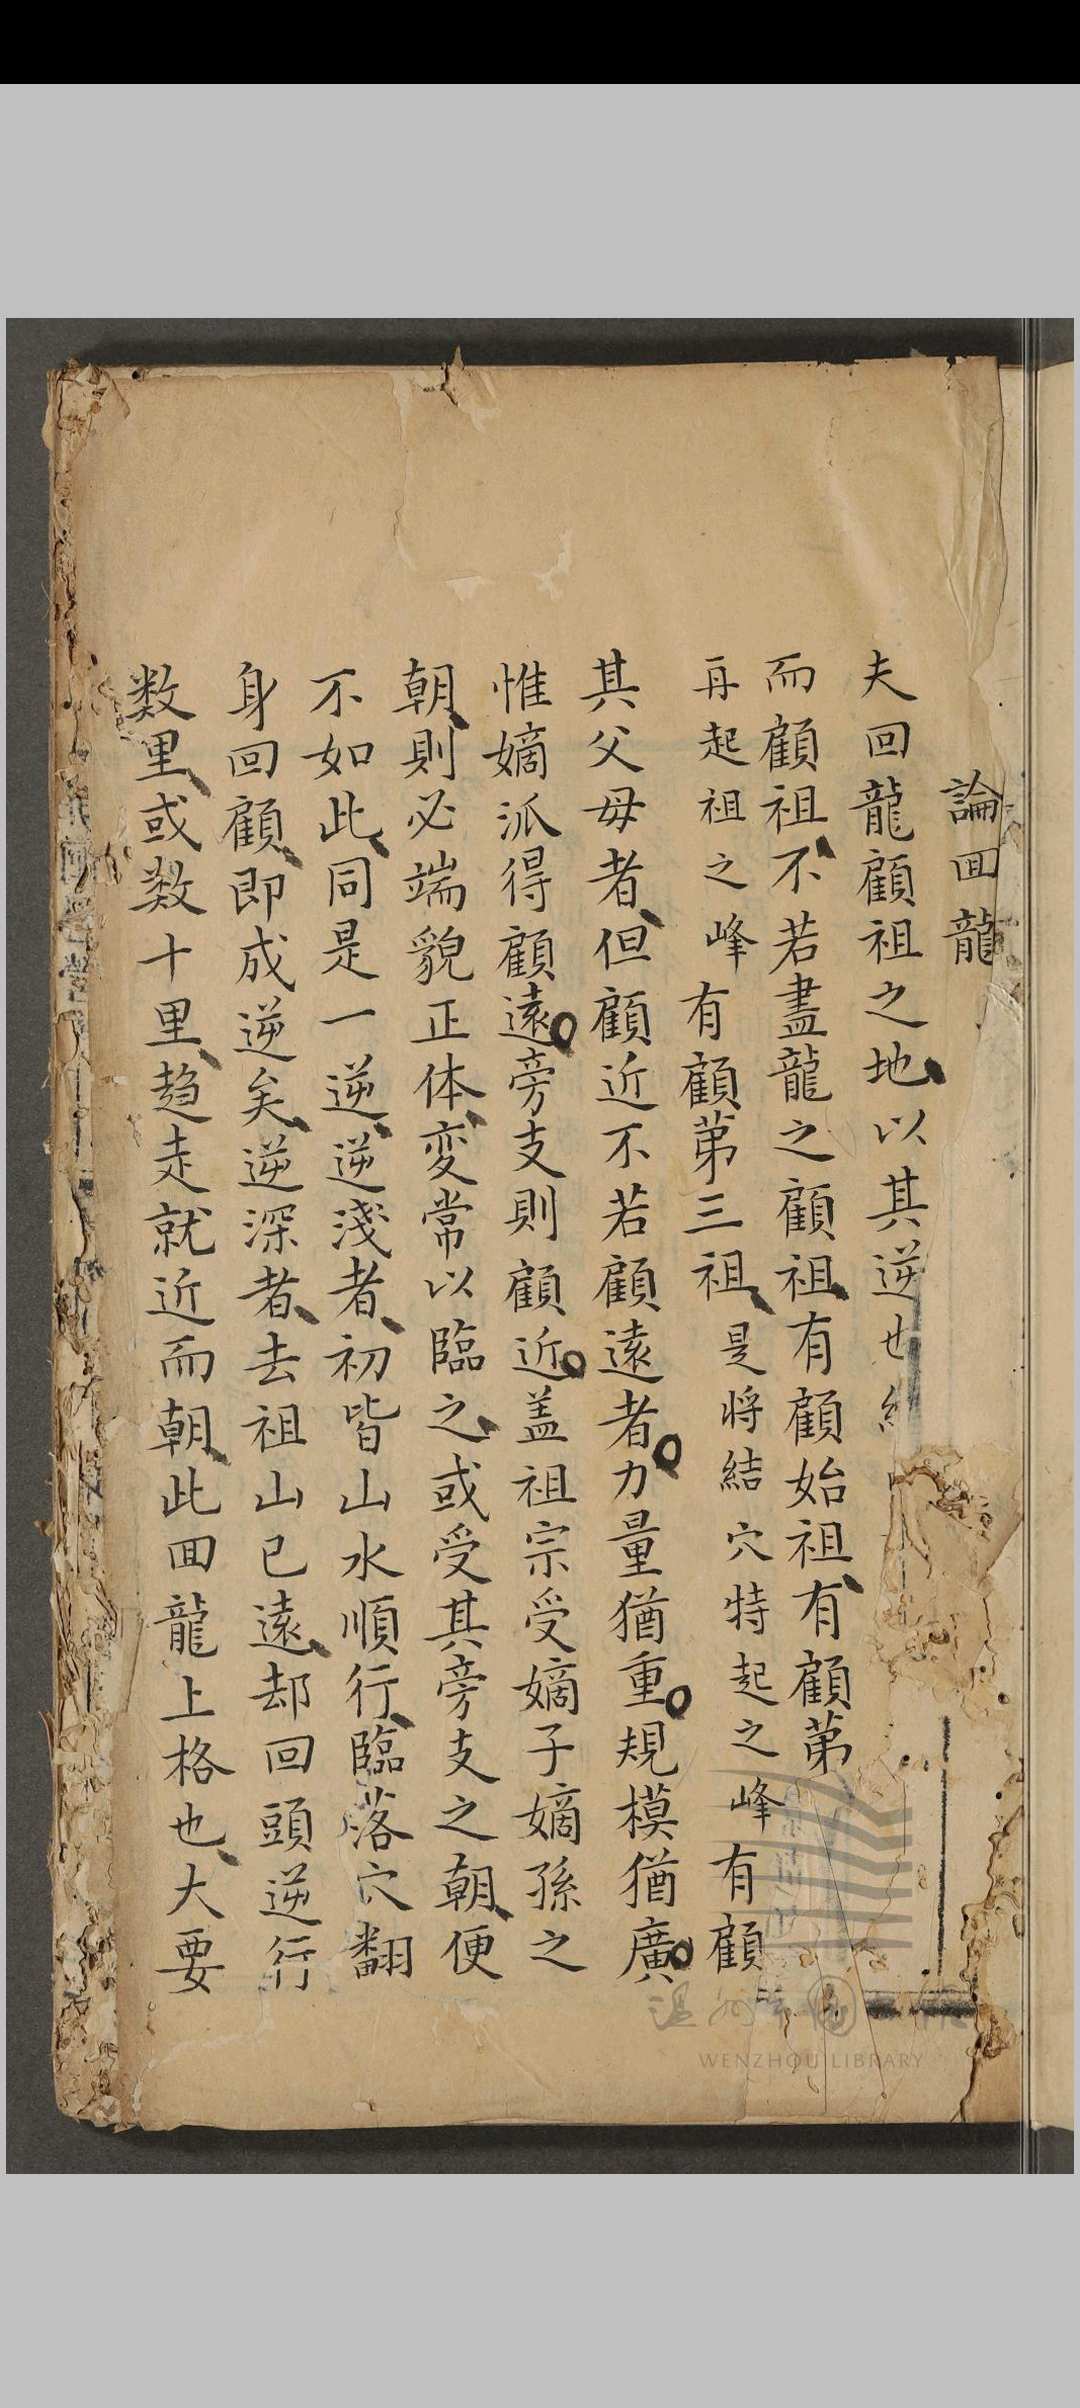 論回龍
夫回龍顧祖之地以其逆也
而顧祖不若盡龍之顧祖有顧始祖有顧第
再起祖之峰有顧第三祖是将結穴特起之峰有顧
其父母者但顧近不若顧遠者力量猶重規模猶廣
惟嫡派得顧遠旁支則顧近盖祖宗受嫡子嫡孫之
朝則必端貌正体変常以臨之或受其旁支之朝便
不如此同是一逆逆淺者初皆山水順行臨落穴翻
身回顧即成逆矣逆深者去祖山已遠却回頭逆行
数里或数十里趋走就近而朝此回龍上格也大要
WENZHOU LIBRARY